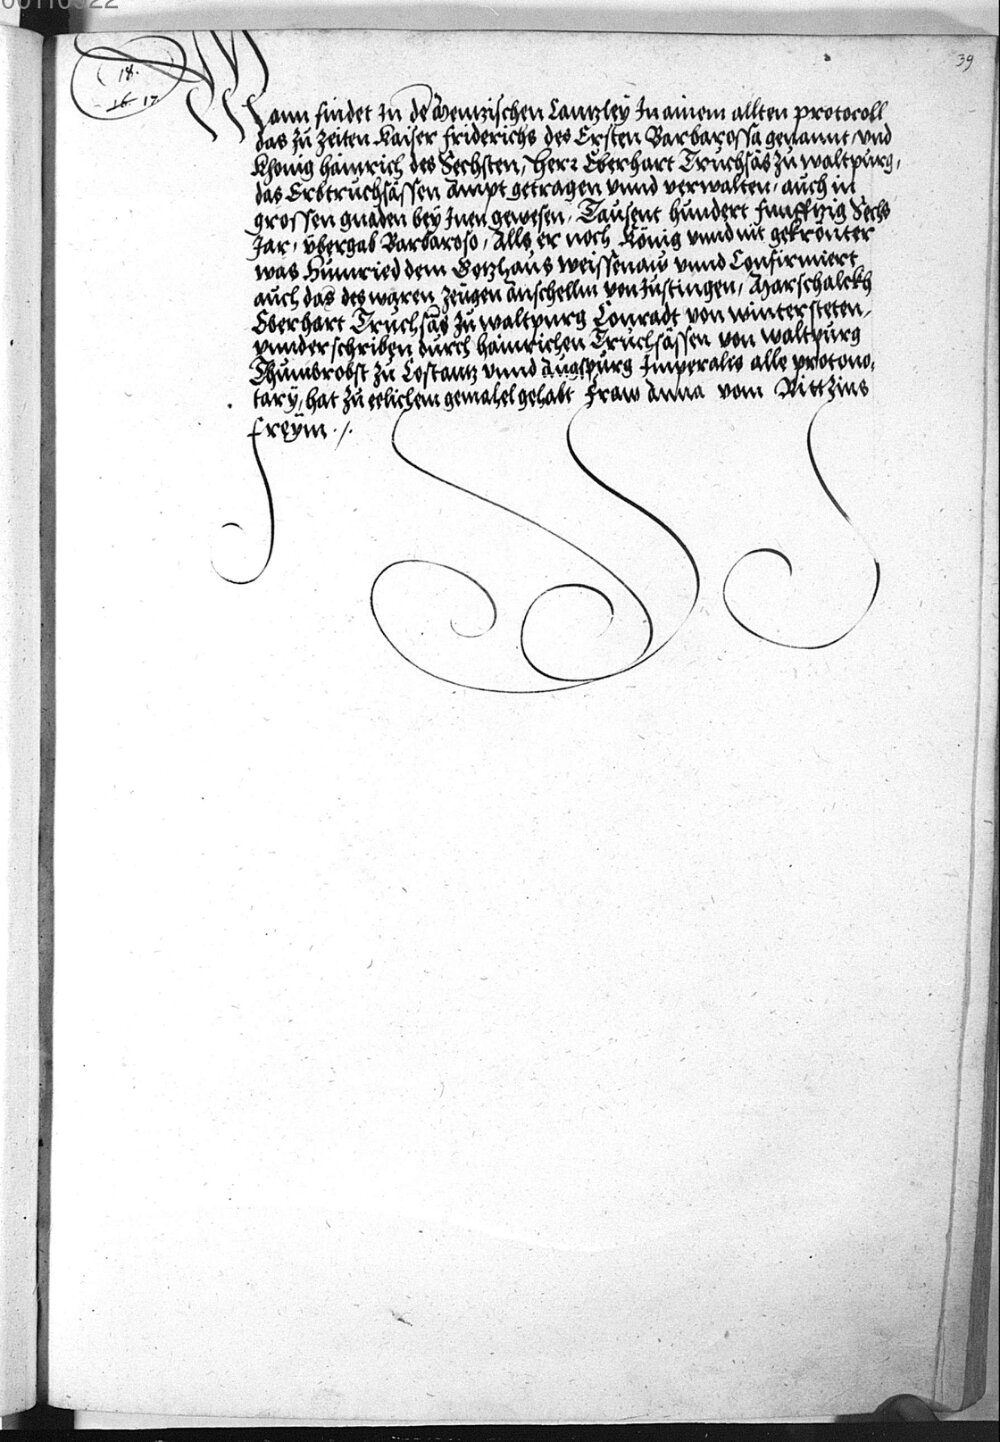 00110522
39
18.
16 17
Mann findet in de Mentzischen Cantzley In ainem allten protocoll
das zu zeiten Kaiser Friderichs des Ersten Barbarossa genannt, vnd
Khönig hainrich des Sechsten, herr Eberhart Truchsäs zu waltpurg,
das Erbtruchsässen Ampt getragen vnnd verwalten, auch in
grossen gnaden bey Inen gewesen, Tausent hundert funfftzig Sechs
Jar, übergab Barbaroso, Alls er noch König vnnd nit gekrönter
was Hunried dem Gotzhaus weissenaw vnnd Confirmiert
auch das des waren zeugen Anschellm von Justingen, Marschalckh
Eberhart Truchsäs zu waltpurg Conradt von wintersteten,
vnnderschriben durch hainrichen Truchsässen von waltpurg
Thumbrobst zu Costantz vnnd Augspurg Imperalis alle protono,
tary, hat zu eelichem gemahel gehabt Fraw Anna vom
freyin ./.